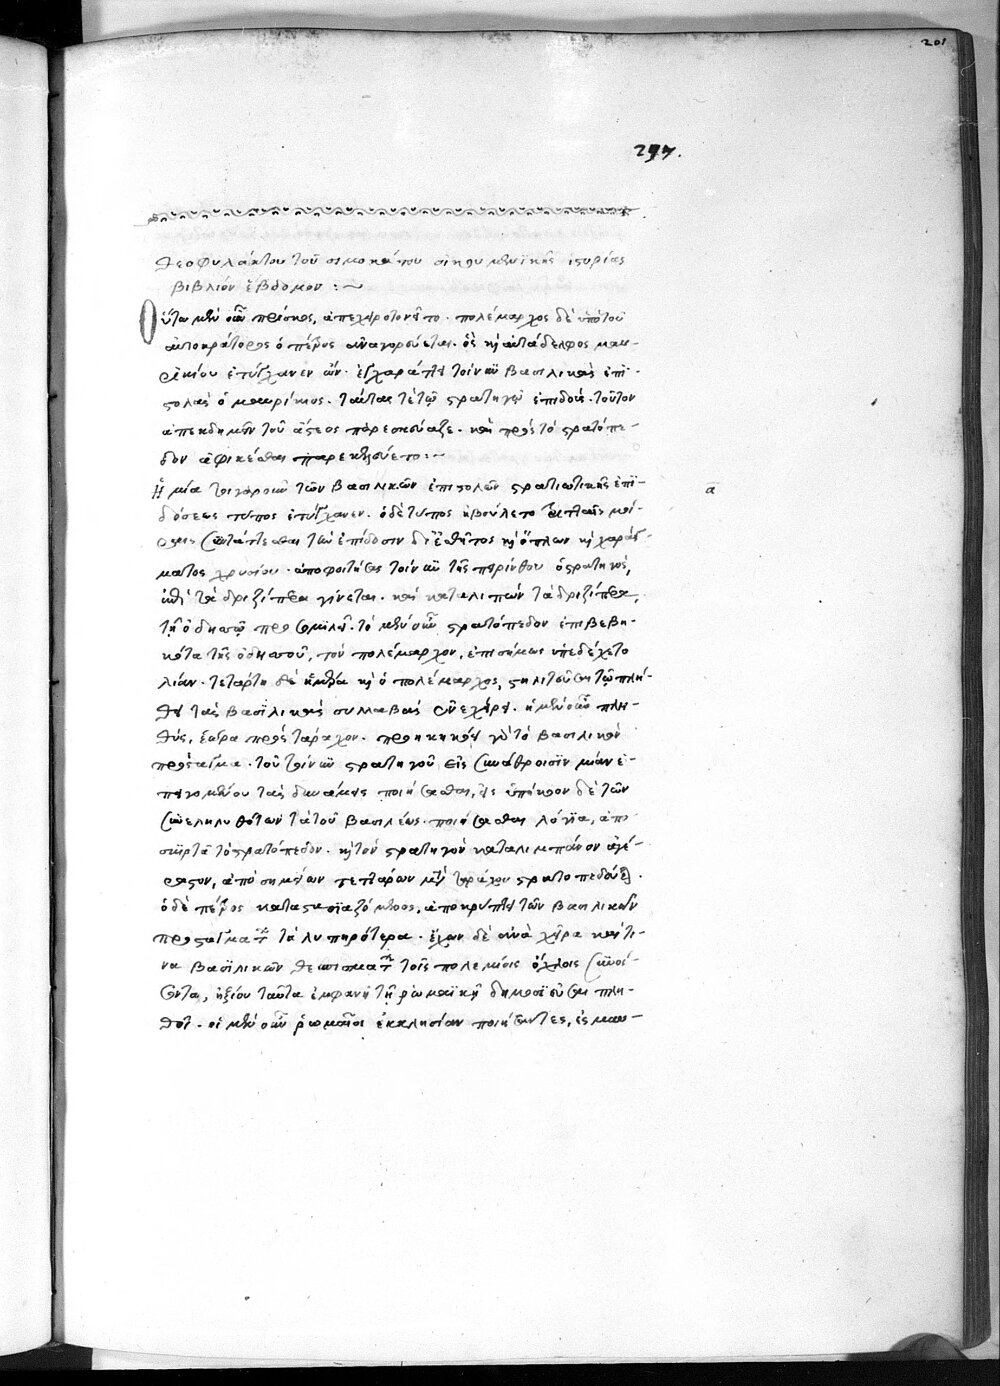 201
297.
θεοφυλάκτου τοῦ σιμοκάτου οἰκουμενικῆς ἱστορίας
βιβλίον ἕβδομον :~
Οὕτω μὲν οὖν πρίσκος, ἀπεχειροτονεῖτο. πολέμαρχος δὲ ὑπὸ τοῦ
αὐτοκράτορος ὁ πέτρος ἀναγορεύεται. ὃς κὴ αὐτάδελφος μαυ-
ρικίου ἐτύγχανεν ὤν. ἐγχαράττει τοίνυν βασιλικὰς ἐπι-
στολὰς ὁ μαυρίκιος. ταύτας τὲ τῷ στρατηγῷ ἐπιδοὺς. τοῦτον
ἀπεκδημεῖν τοῦ ἄστεος παρεσκεύαζε. καὶ πρὸς τὸ στρατόπε-
δον ἀφικέσθαι παρεκελεύετο :~
Ἡ μία τοιγαροῦν τῶν βασιλικῶν ἐπιστολῶν στρατιωτικῆς ἐπι-
α
δόσεως τύπος ἐτύγχανεν. ὁ δὲ τύπος ἠβούλετο τριτταῖς μοί-
ραις συντάττεσθαι τὴν ἐπίδοσιν δι' ἐσθῆτος κὴ ὅπλων κὴ χαράγ-
ματος χρυσίου. ἀποφοιτήσας τοίνυν τῆς περίνθου ὁ στρατηγὸς,
ἐπὶ τὰ δριζίπερα γίνεται. καὶ καταλιπὼν τὰ δριζίπερα,
τῇ ὀδησσῷ προσομιλεῖ. τὸ μὲν οὖν στρατόπεδον ἐπιβεβη-
κότα τῆς ὀδησσοῦ, τὸν πολέμαρχον, ἐπισήμως ὑπεδέχετο
λίαν. τετάρτῃ δὲ ἡμέρα κὴ ὁ πολέμαρχος, στηλιτεῦσαι τῷ πλή-
θει τὰς βασιλικὰς συλλαβὰς ἐνεχείρει. ἡ μὲν οὖν πλη-
θὺς, ἑώρα πρὸς τάραχον. προηκηκόει γὰρ τὸ βασιλικὸν
πρόσταγμα. τοῦ τοίνυν στρατηγοῦ εἰς συνάθροισιν μίαν ἐ-
πειγομένου τὰς δυνάμεις ποιήσασθαι, εἰς ὑπήκοον δὲ τῶν
συνεληλυθότων τὰ τοῦ βασιλέως. ποιήσασθαι λόγια, ἀπο-
σκιρτᾶ τὸ στρατόπεδον. κὴ τὸν στρατηγὸν καταλιμπάνον ἀγέ-
ραστον, ἀπὸ σημείων τεττάρων μετὰ ταράχου στρατοπεδεύεται.
ὁ δὲ πέτρος κατασκιαζόμενος, ἀποκρύπτει τῶν βασιλικῶν
προσταγμάτων τὰ λυπηρότερα. ἔχων δὲ ἀνὰ χεῖρα καὶ τι-
να βασιλικῶν θεσπισμάτων τοῖς πολεμίοις ὄχλοις συνοί-
σοντα, ἠξίου ταῦτα ἐμφανῆ τῇ ῥωμαϊκῇ δημοσιεῦσαι πλη-
θύϊ. οἱ μὲν οὖν ῥωμαῖοι ἐκκλησίαν ποιήσαντες, ἐς μαυ-